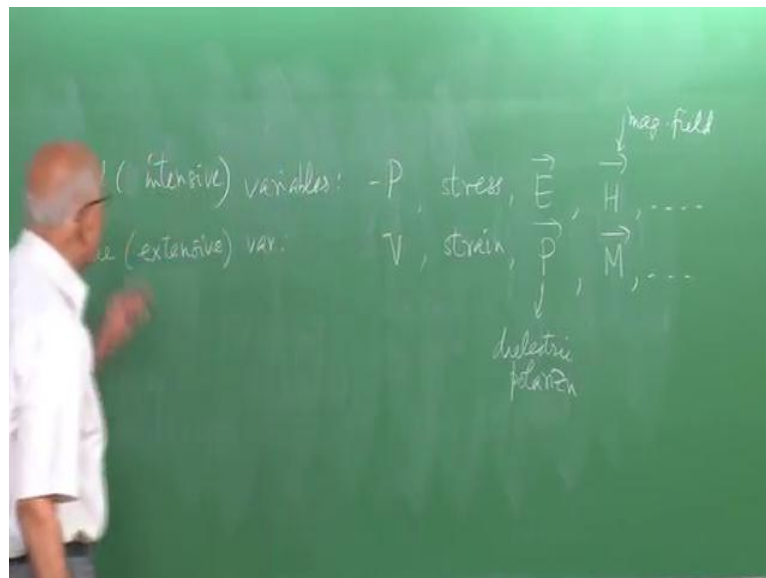 mag. field
(intensive) variables: -P, stress, E⃗, H⃗, ....
(extensive) var. V, strain, P⃗, M⃗, ....
dielectric
polarizn